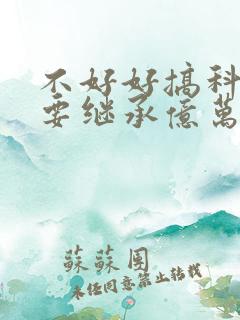 不好好搞科
要继承億萬
蘇蘇图
未经同意禁止转载